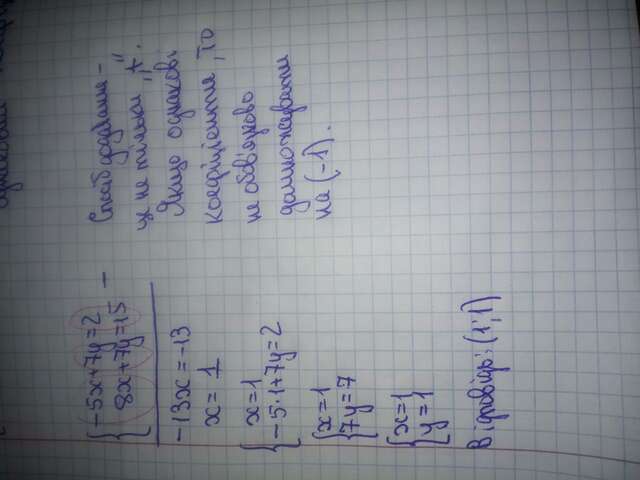 {-5x+7y=2
{8x+7y=15 -
-13x=-13
x=1
{x=1
{-5·1+7y=2
{x=1
{7y=7
{x=1
{y=1
Відповідь: (1;1)
Спосіб додавання -
це не тільки „+".
Якщо однакові
коефіцієнти, то
не обов'язково
домножувати
на (-1).